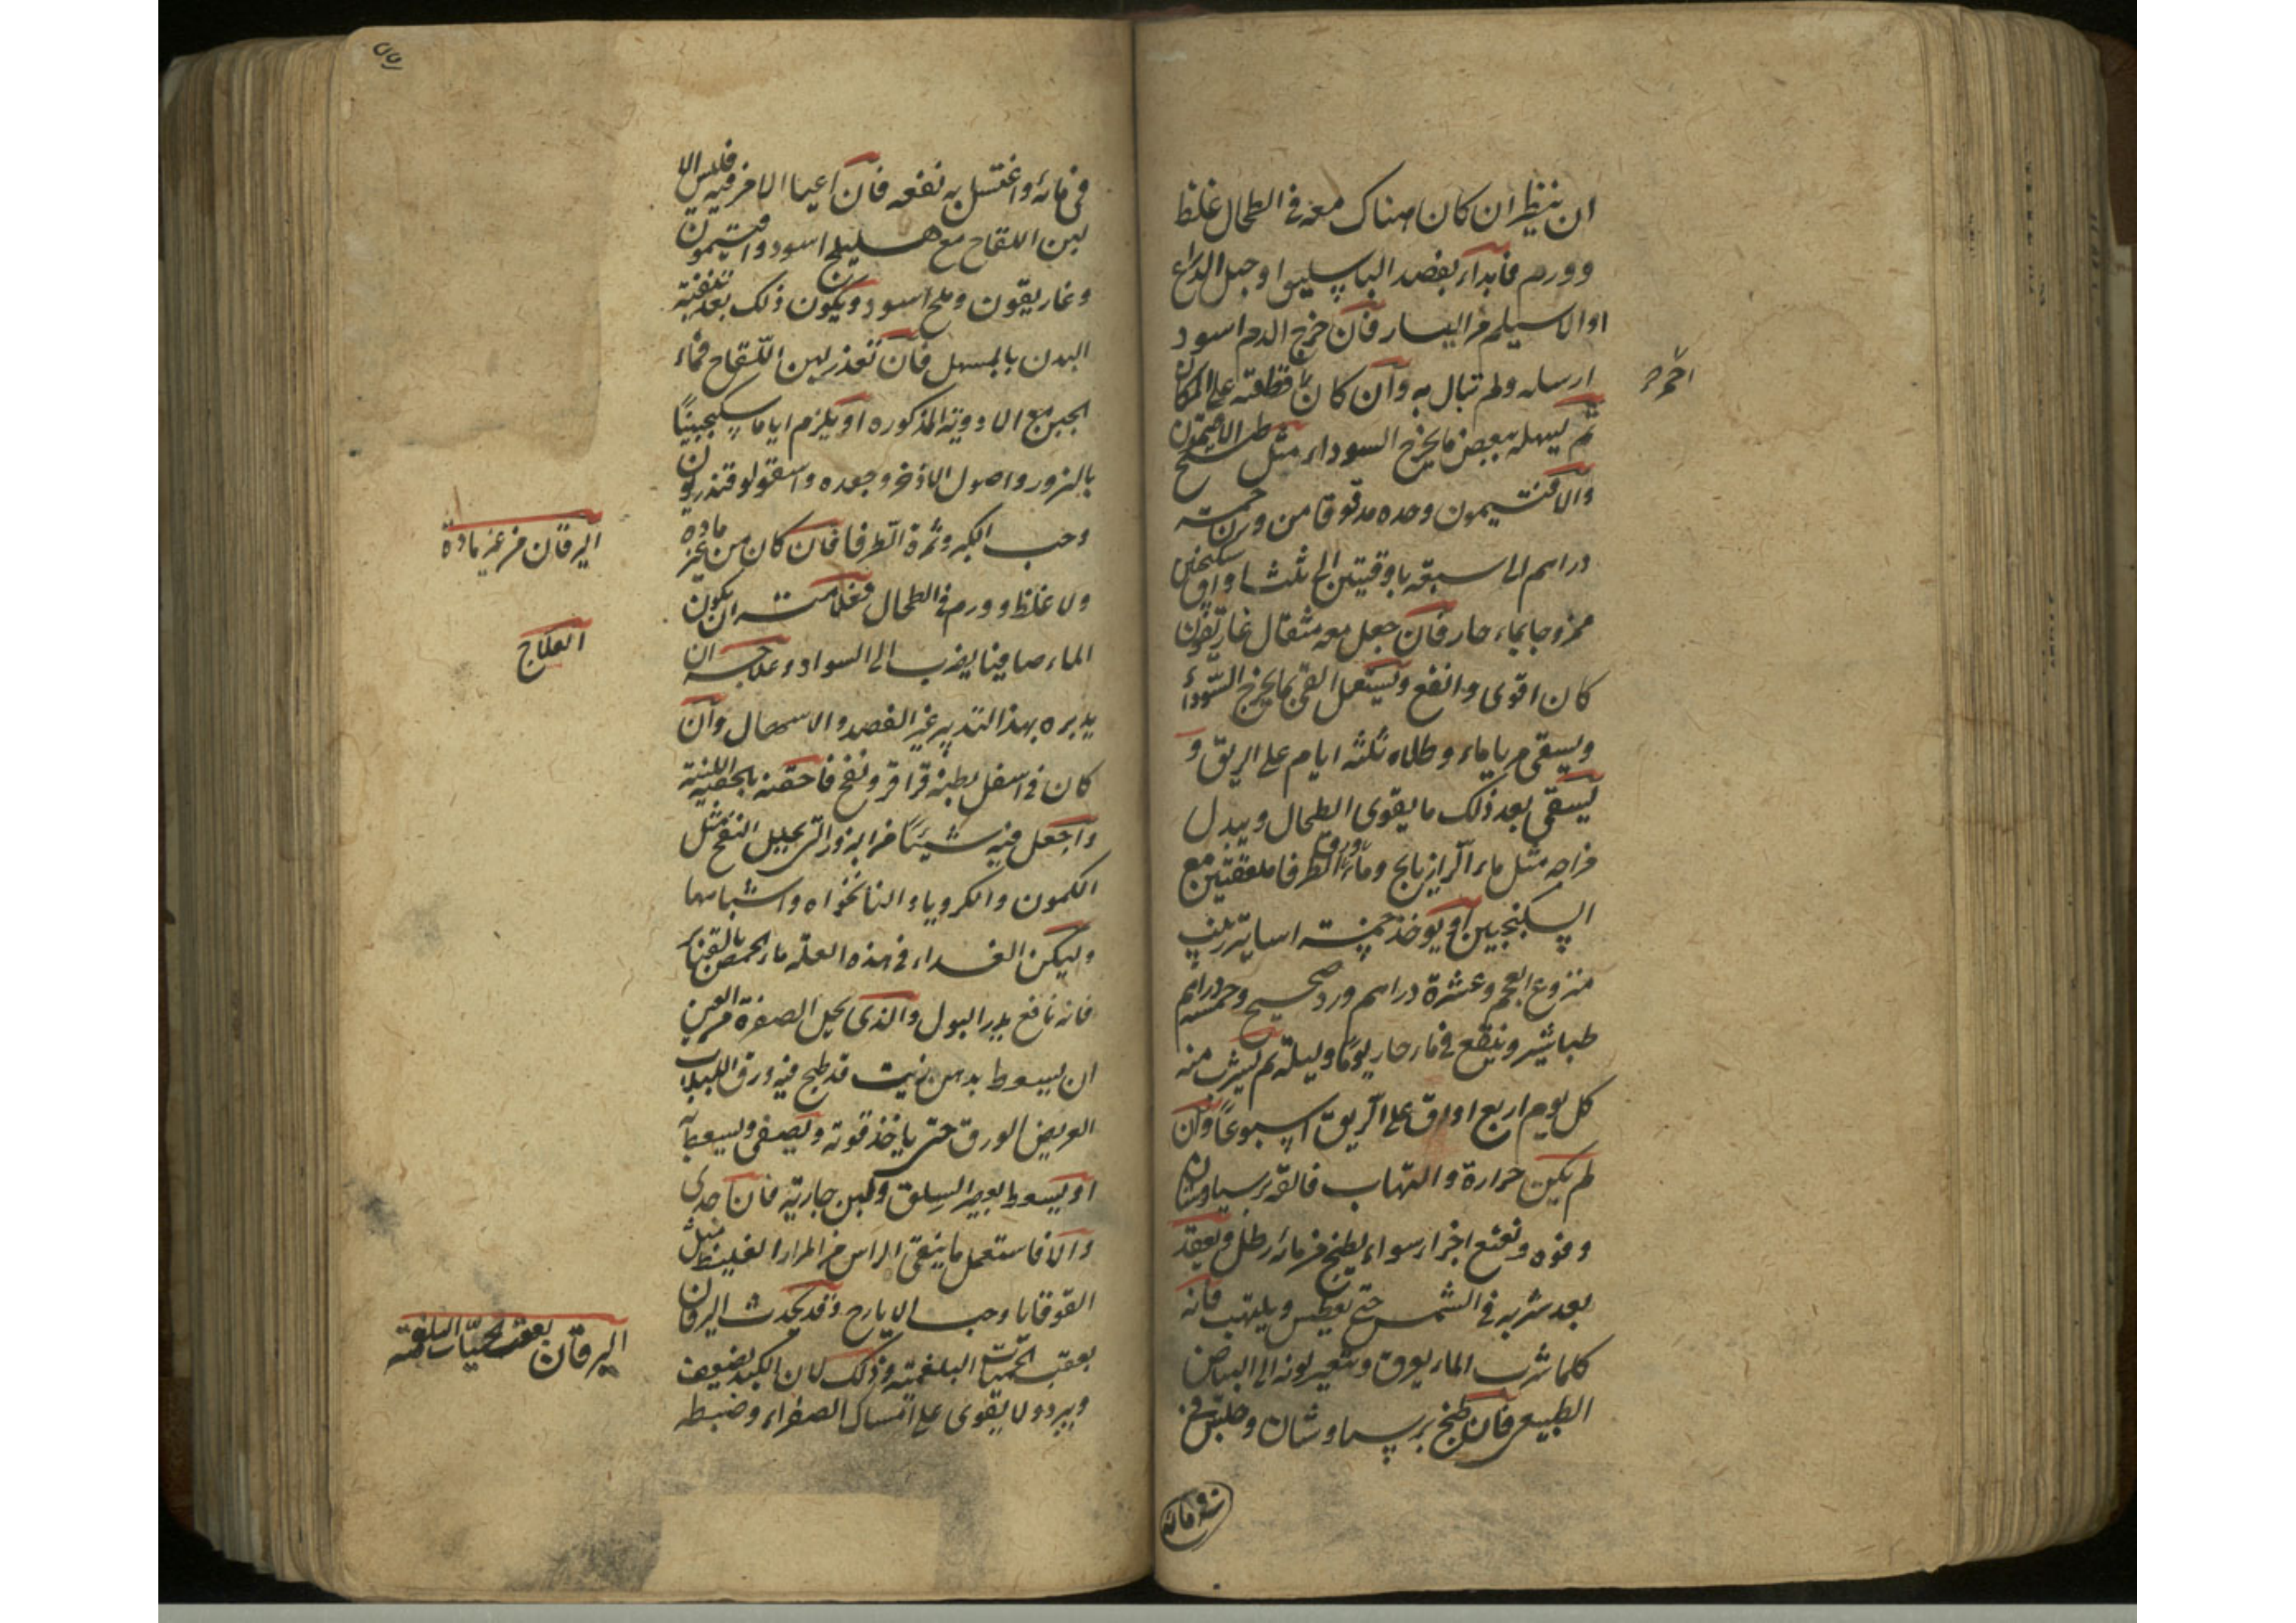 ان ينظر ان كان هناك معه في الطحال غلظ
وورم فابداء بفصد الباسليق او حبل الذراع
او الاسيلم من اليسار فان خرج الدم اسود
ارسله ولم تبال به وان كان قطعته على المكان
احمر
ثم يسهله ببعض ما يخرج السوداء مثل طبيخ الافتيمون
والافتيمون وحده مدقوقا من وزن خمسة
دراهم الى سبعة باوقيتين الى ثلث اواق سكنجبين
ممزوجا بماء حار فان جعل معه مثقال غاريقون
كان اقوى وانفع ويستعمل القئ بما يخرج السوداء
ويسقى وطلاه ثلثه ايام على الريق و
يسقى بعد ذلك ما يقوى الطحال ويبدل
مزاجه مثل ماء الرازيانج وماء ورق الطرفا ملعقتين مع
السكنجبين او يوخذ خمسة
منزوع العجم وعشرة دراهم ورد صحيح وخمسة دراهم
طباشير وينقع في ماء حار يوما وليلة ثم يشرب منه
كل يوم اربع اواق على الريق اسبوعا وان
لم يكن حرارة والتهاب فالقه برسياوشان
وفوه ونعنع اجزاء سواء يطبخ من مائه رطل ويقعد
بعد شربه في الشمس حتى يعطش ويلتهب فانه
كلما شرب الماء يعرق ويتغير لونه الى البياض
الطبيعي فان طبخ برسياوشان وجلس في
في مائه
في مائه واغتسل به نفعه فان اعيا الامر فيه فليس الا
لبن اللقاح مع هليلج اسود وافتيمون
وغاريقون وملح اسود ويكون ذلك بعد تنقية
البدن بالمسهل فان تعذر لبن اللقاح فماء
الجبن مع الادوية المذكوره او يلزم اياما سكنجبينا
بالبزور واصول الاذخر وجعده واسقولوقندريون
وحب الكبر وثمرة الطرفا فان كان من غير ماده
ولا غلظ وورم في الطحال فعلامته ان يكون
الماء صافيا يضرب الى السواد وعلاجه ان
يدبره بهذا التدبير غير الفصد والاسهال وان
كان في اسفل بطنه قراقر ونفخ فاحقنه بالحقنة اللينة
واجعل فيه شيئا من البزور التي تحلل النفخ مثل
الكمون والكرويا والنانخواه واشباهها
وليكن الغداء في هذه العلة ماء الحمص بالقنابر
فانه نافع يدر البول والذي يحل الصفرة من العين
ان يسعط بدهن زيت قد طبخ فيه ورق اللبلاب
العريض الورق حتى ياخذ قوته ويصفى ويسعط به
او يسعط بعصير السلق ولبن جارية فان اجدى
والا فاستعمل ما ينقى الراس من المرار الغليظ مثل
القوقايا وحب الايارج وقد يحدث اليرقان
بعقب الحميات البلغمية وذلك لان الكبد يضعف
ويبرد ولا يقوى على امساك الصفراء وضبطه
اليرقان من غير مادة
العلاج
اليرقان بعقب الحميات البلغمية